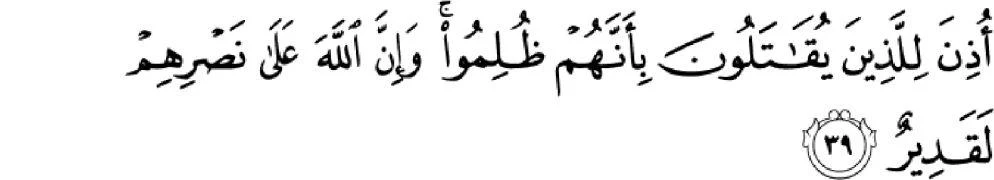 أُذِنَ لِلَّذِينَ يُقَٰتَلُونَ بِأَنَّهُمْ ظُلِمُوا۟ ۚ وَإِنَّ ٱللَّهَ عَلَىٰ نَصْرِهِمْ
لَقَدِيرٌ ٣٩